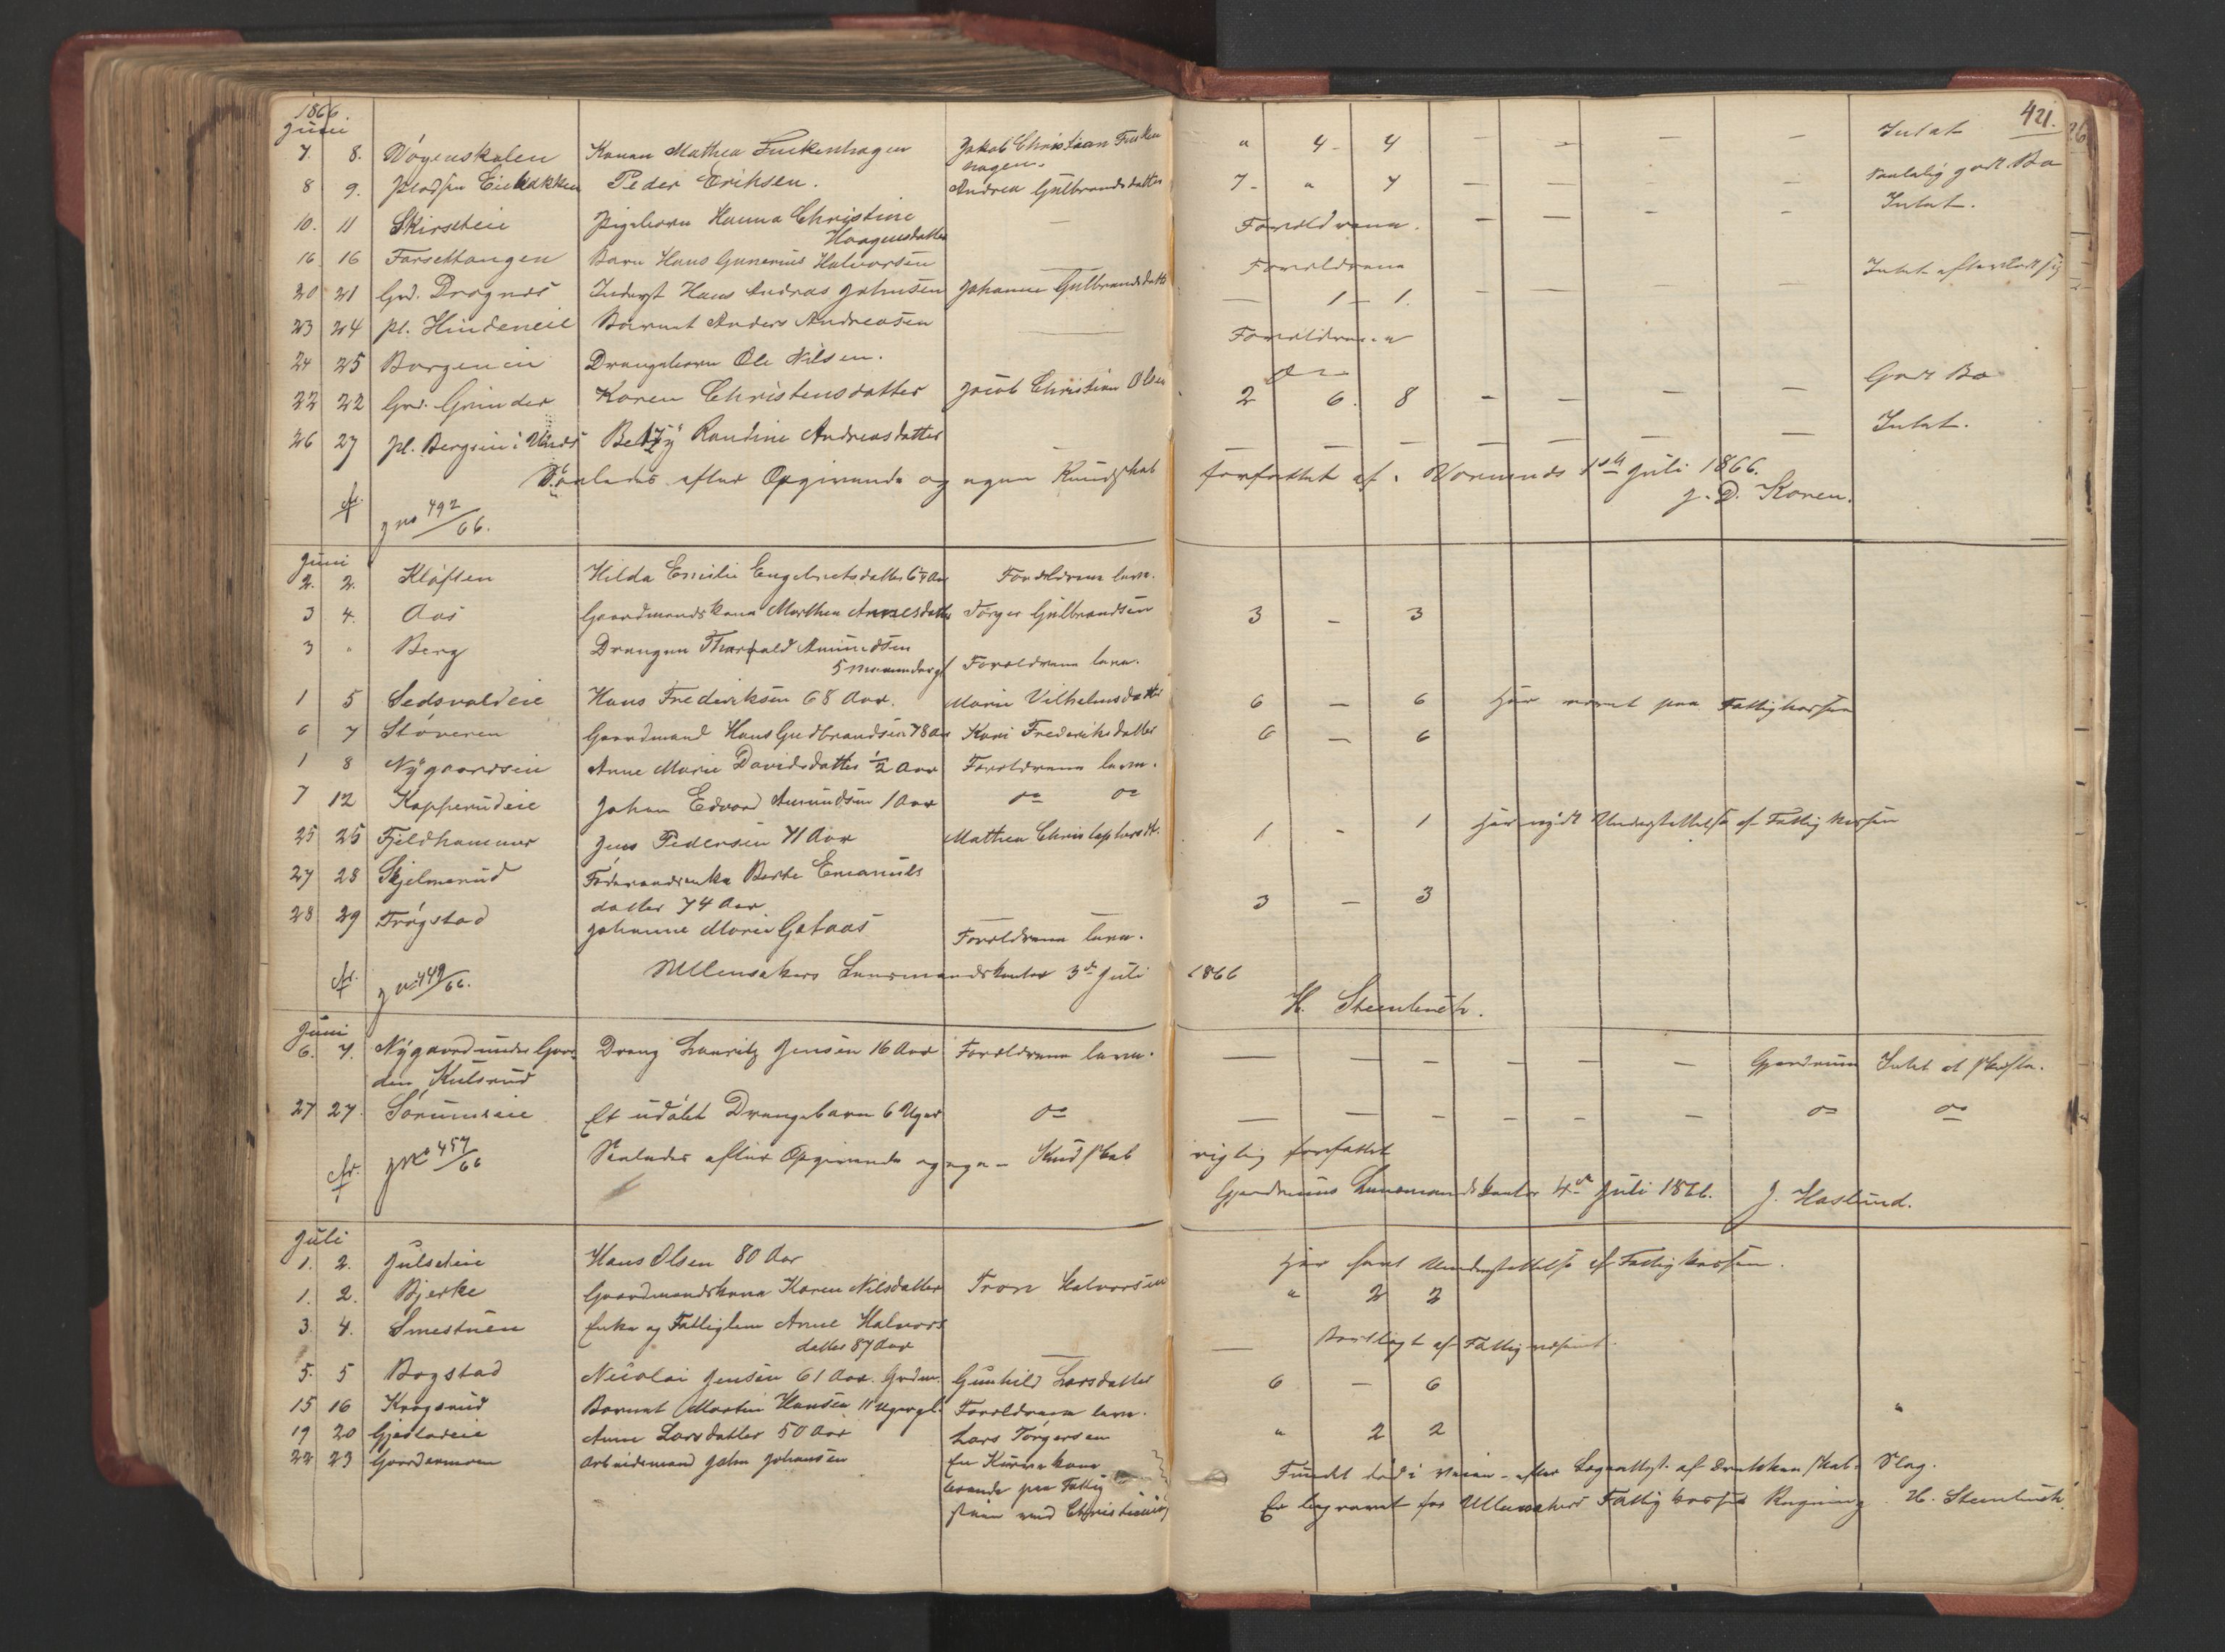 1866.
421
Juni
7. 8. Vøyenskalen Konen Mathea Fuckenhagen Jakob Christian Fucken " 4 - 4 — — — — Intet
hagen.
8 9. Pladsen Peder Eriksen. Andrea Gulbrandsdatter 7 - " 7 — — — — godt Bo
10. 11 Skirsteie Pigebarn Hanna Christine — Forældrene. — — — — Intet.
Haagensdatter
16. 16 Farsettangen Barn Hans Gunerius Halvorsen — Forældrene
20 21 Grd. Dragnæs Inderst Hans Andreas Johnsen Johanne Gulbrandsdatter — 1 - 1. — — — — Intet efterladt sig
23 24 pl. Hindeneie Barnet Anders Andreasen — Forældrene
24 25 Borgeneie Drengebarn Ole Nilsen. do
22 22 Grd. Grinder Karen Christensdatter Jacob Christian Olsen 2 6. 8 — — — — Godt Bo
26 27 pl. Bergseie i Betzy Randine Andreasdatter — — — — — — — Intet.
Saaledes efter Opgivende og egen Kundskab forfattet af. Vormnæs 1ste Juli 1866.
J. D. Koren.
cfr. J no 492/66.
Juni
2. 2. Kløften Hilda Emilie Engebretsdatter 6 1/4 Aar Forældrene leve.
3 4. Aas Gaardmandskone Marthea Annesdatter Torger Gulbrandsen 3 — 3
3 " Berg Drengen Thorvald Amundsen
5 Maaneder gl Forældrene leve.
1 5 Sedsvoldeie Hans Frederiksen 68 Aar. Marie Vilhelmsdatter 6 — 6 Har været paa Fattigkassen
6 7 Støveren Gaardmand Hans Gudbrandsen 78 Aar Kari Frederiksdatter 6 — 6
1 8 Nygaardseie Anne Marie Davidsdatter 1/2 Aar Forældrene leve.
7 12 Kopperudeie Johan Edvard Amundsen 1 Aar do do
25 25 Fjeldhammer Jens Pedersen 71 Aar Mathea Christophersdt. 1 - 1 Har nydt Understøttelse af Fattigkassen
27 28 Skjelmerud Føderaadsenke Berte Emanuels
datter 74 Aar 3 — 3
28 29 Frøgstad Johanne Marie Gataas Forældrene leve.
Ullensakers Lensmandskontor 3de Juli 1866
cfr. J no 449/66. H. Steenbuch.
Juni
6. 7. Nygaard under Gaar- Dreng Lauritz Jensen 16 Aar Forældrene leve. — — — — — — Gjerdrum Intet at skifte.
den Kulsrud
27 27. Sørumseie Et udøbt Drengebarn 6 Uger do — — — — — — do do
cfr. J no 457/66 Saaledes efter Opgivende og egen Kundskab rigtig forfattet
Gjerdrums Lensmandskontor 4de Juli 1866. J. Haslund.
Juli
1. 2. Julseie Hans Olsen 80 Aar Har havt Understøttelse af Fattigkassen.
1. 2. Bjerke Gaardmandskone Karen Nilsdatter Tron Halvorsen " 2 2
3. 4. Smestuen Enke og Fattiglem Anne Halvors
datter 87 Aar — — Bortlagt af Fattigvæsenet.
5. 5 Bogstad Nicolai Jensen 61 Aar. Grdm. Gunhild Larsdatter 6 — 6
15 16 Krogsrud Barnet Martin Hansen 11 Uger gl. Forældrene leve. "
19 20 Gjestadeie Anne Larsdatter 50 Aar Lars Torgersen " 2 2
22 23 Gardermoen Arbeidsmand John Johansen En Kone
boende paa Fattig Fundet død i Veien - efter Lægeattest af Drukkenskab - Slag.
stuen ved Christiania Er begravet for Ullensakers Fattigkasses Regning. H. Steenbuch.